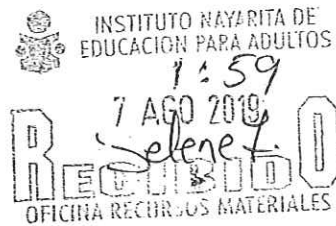 INSTITUTO NAYARITA DE
EDUCACION PARA ADULTOS
1:59
7 AGO 2019
Selene f.
RECIBIDO
OFICINA RECURSOS MATERIALES